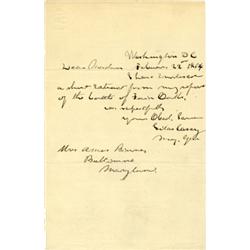 Washington DC
Dear Madam February 22 1864
I have enclosed
a short extract from my report
of the battle of Fair Oaks.
respectfully
your Obed. Serv
Silas Casey
Maj Gen
Mrs Amos
Baltimore
Maryland